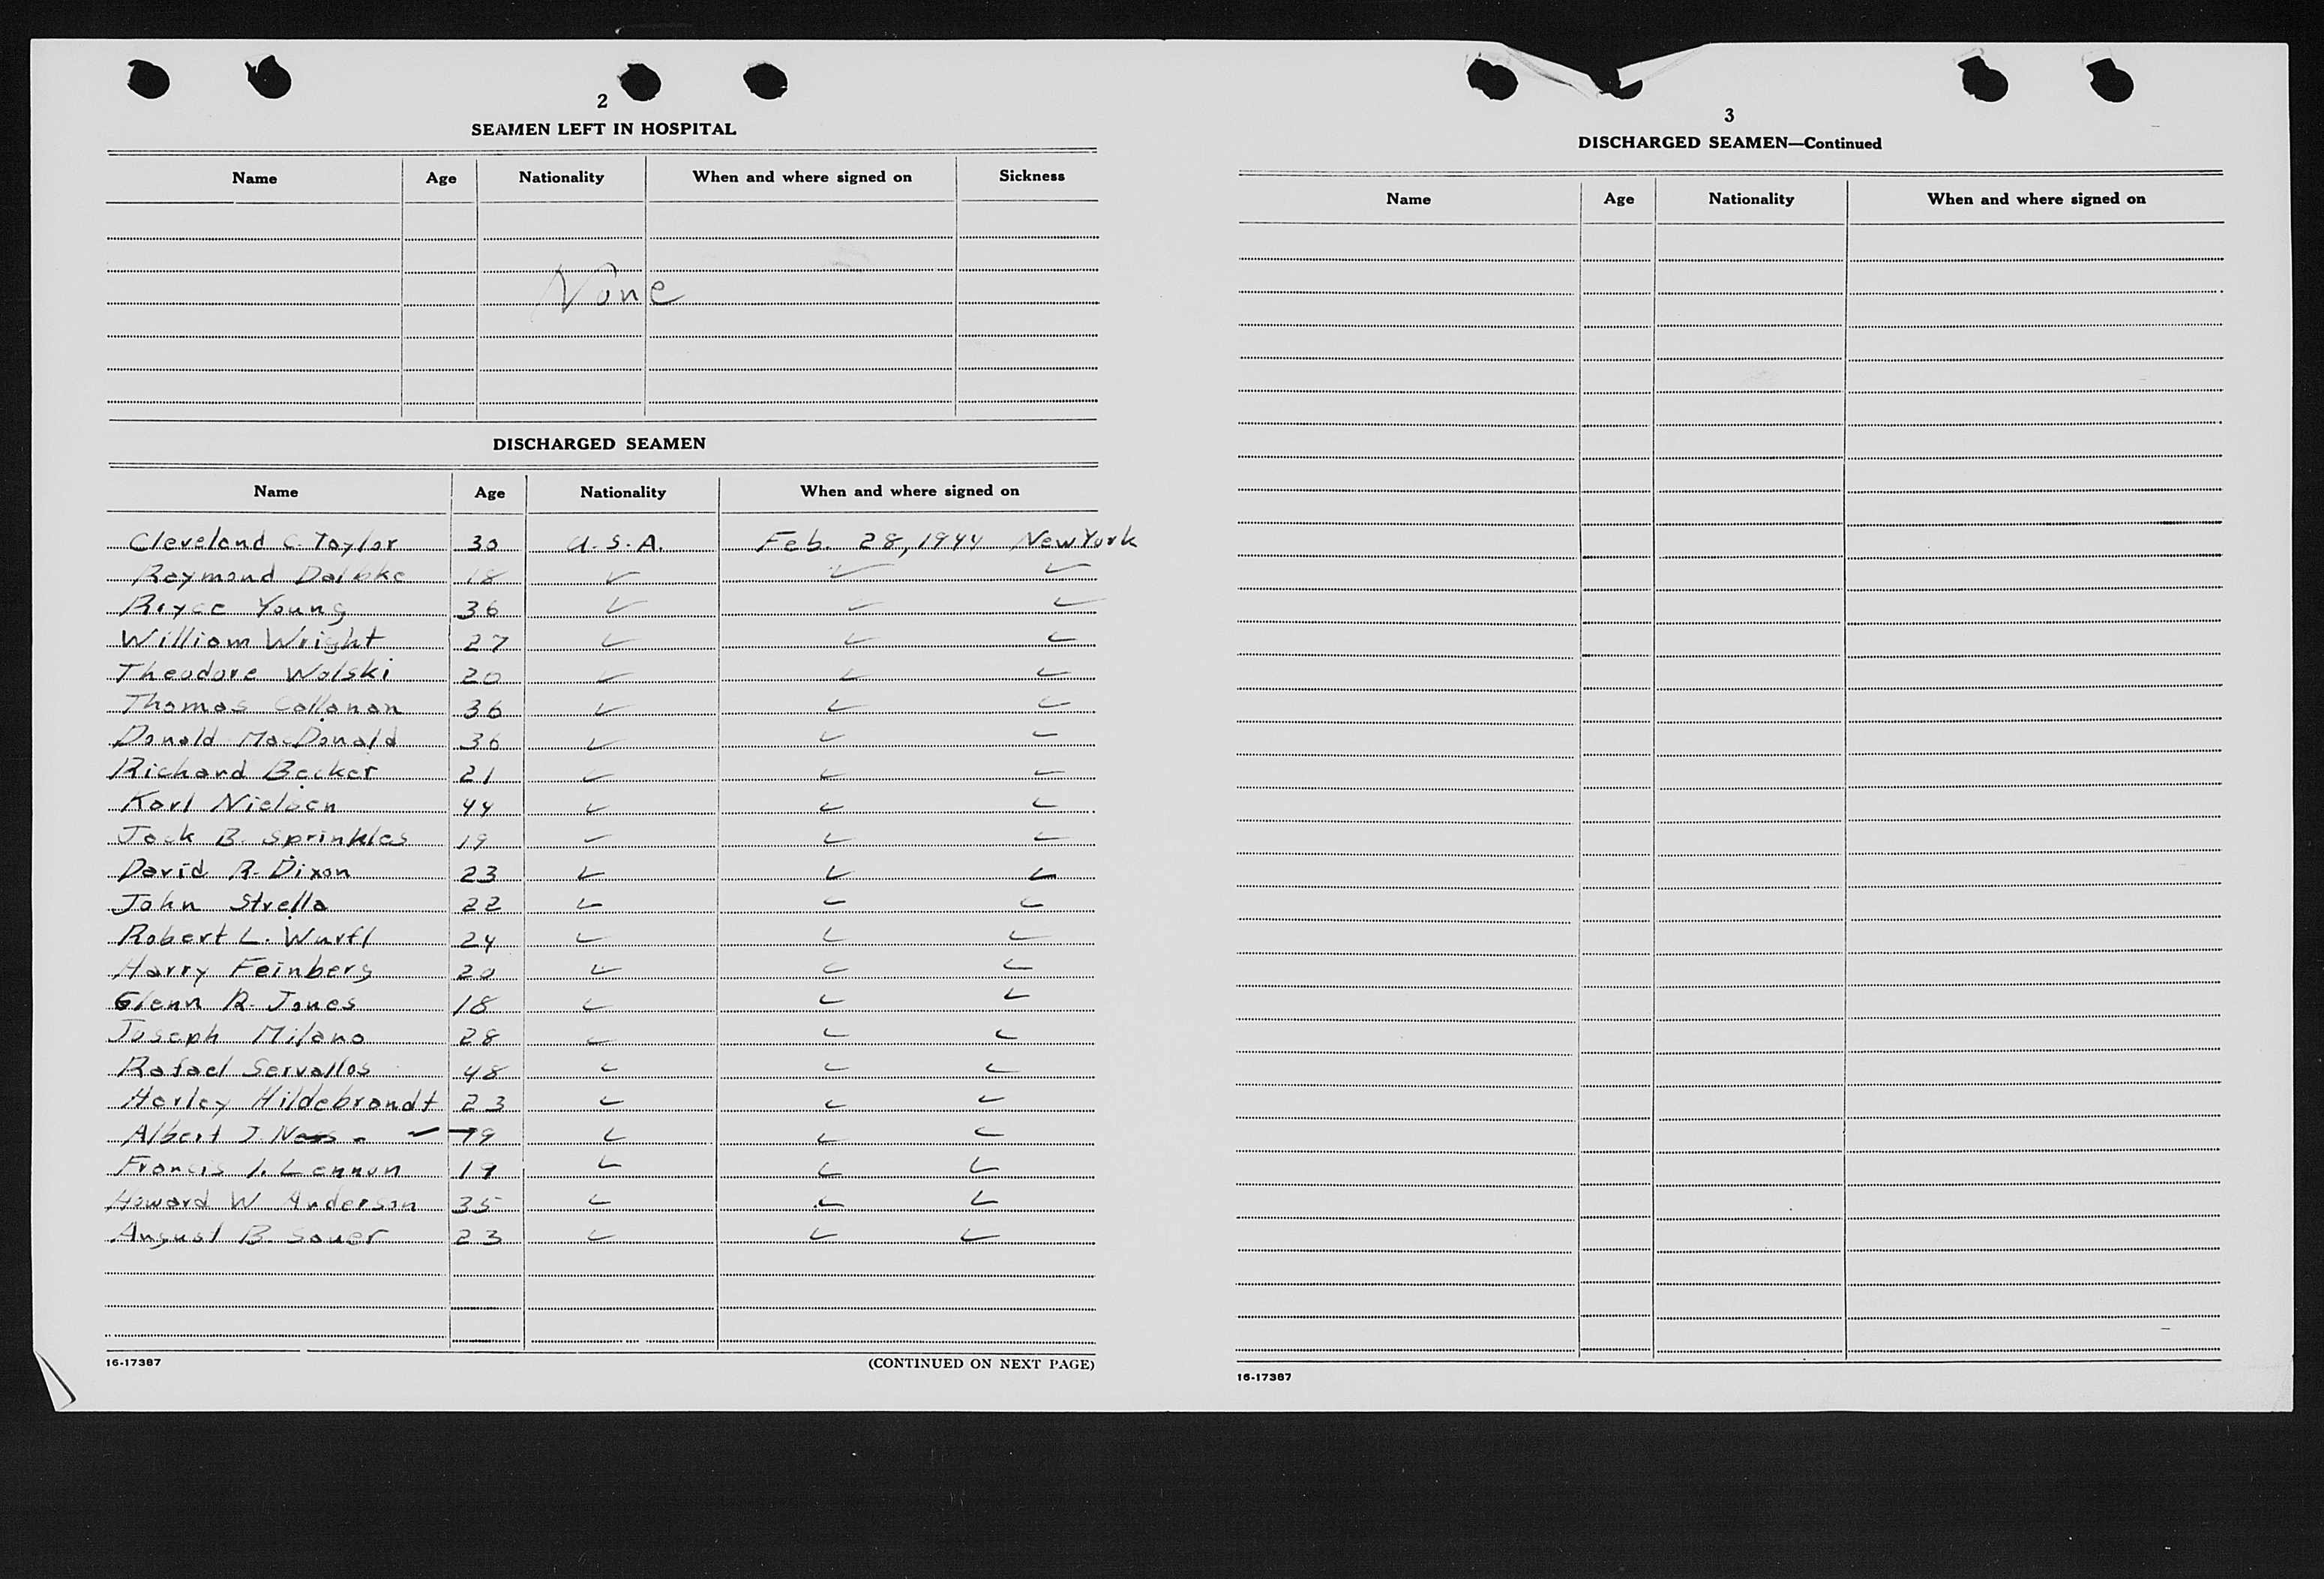 2
SEAMEN LEFT IN HOSPITAL
Name Age Nationality When and where signed on Sickness
None
DISCHARGED SEAMEN
Name Age Nationality When and where signed on
Cleveland C. Taylor 30 U.S.A. Feb. 28, 1944 New York
Raymond 18 ✓ ✓ ✓
Royce Young 36 ✓ ✓ ✓
William Wright 27 ✓ ✓ ✓
Theodore Walski 20 ✓ ✓ ✓
Thomas Callanan 36 ✓ ✓ ✓
Donald MacDonald 36 ✓ ✓ ✓
Richard Becker 21 ✓ ✓ ✓
Karl Nielsen 44 ✓ ✓ ✓
Jack B. Sprinkles 19 ✓ ✓ ✓
David R. Dixon 23 ✓ ✓ ✓
John Strella 22 ✓ ✓ ✓
Robert L. Wurfl 24 ✓ ✓ ✓
Harry Feinberg 20 ✓ ✓ ✓
Glenn R. Jones 18 ✓ ✓ ✓
Joseph Milano 28 ✓ ✓ ✓
Rafael Servallos 48 ✓ ✓ ✓
Harley Hildebrandt 23 ✓ ✓ ✓
Albert J. Ness ✓ 19 ✓ ✓ ✓
Francis J. Lennon 19 ✓ ✓ ✓
Howard W. Anderson 35 ✓ ✓ ✓
August B. Sauer 23 ✓ ✓ ✓
16-17387 (CONTINUED ON NEXT PAGE)
3
DISCHARGED SEAMEN—Continued
Name Age Nationality When and where signed on
16-17387